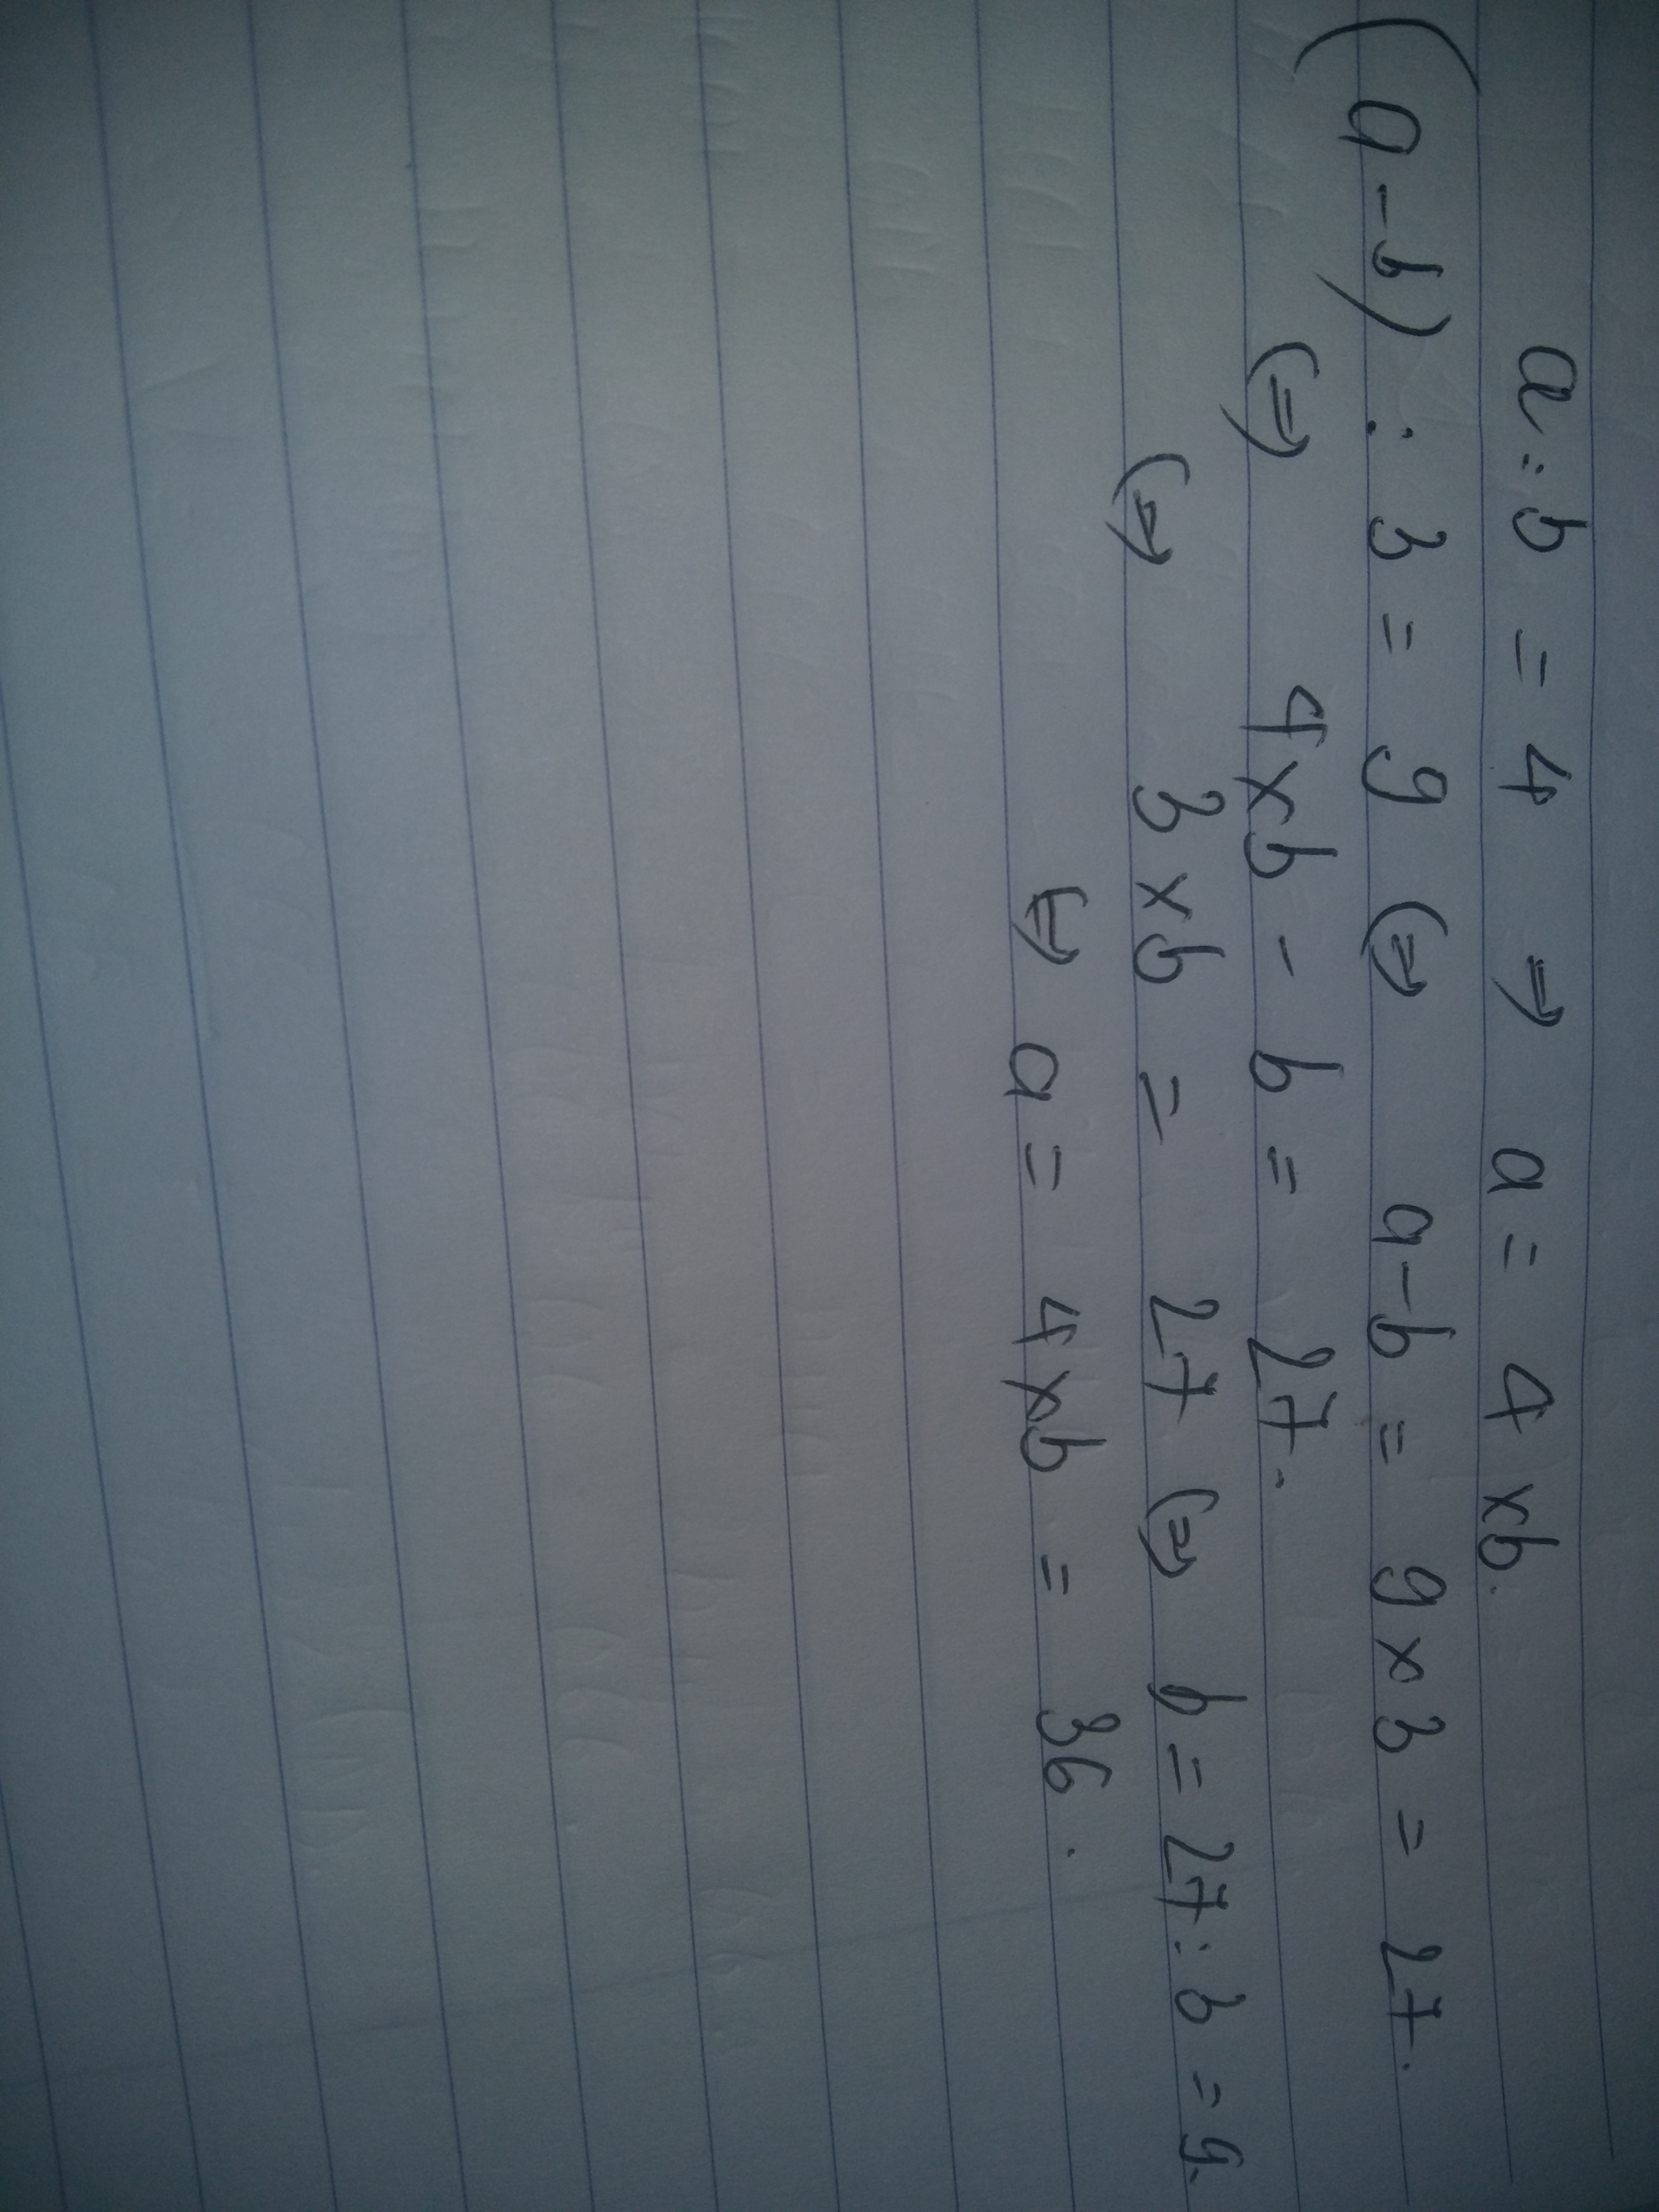 a : b = 4 ⇒ a = 4 x b.
(a - b) : 3 = 9 (=) a - b = 9 x 3 = 27.
(=) 4 x b - b = 27.
(=) 3 x b = 27 (=) b = 27 : 3 = 9.
(=) a = 4 x b = 36.